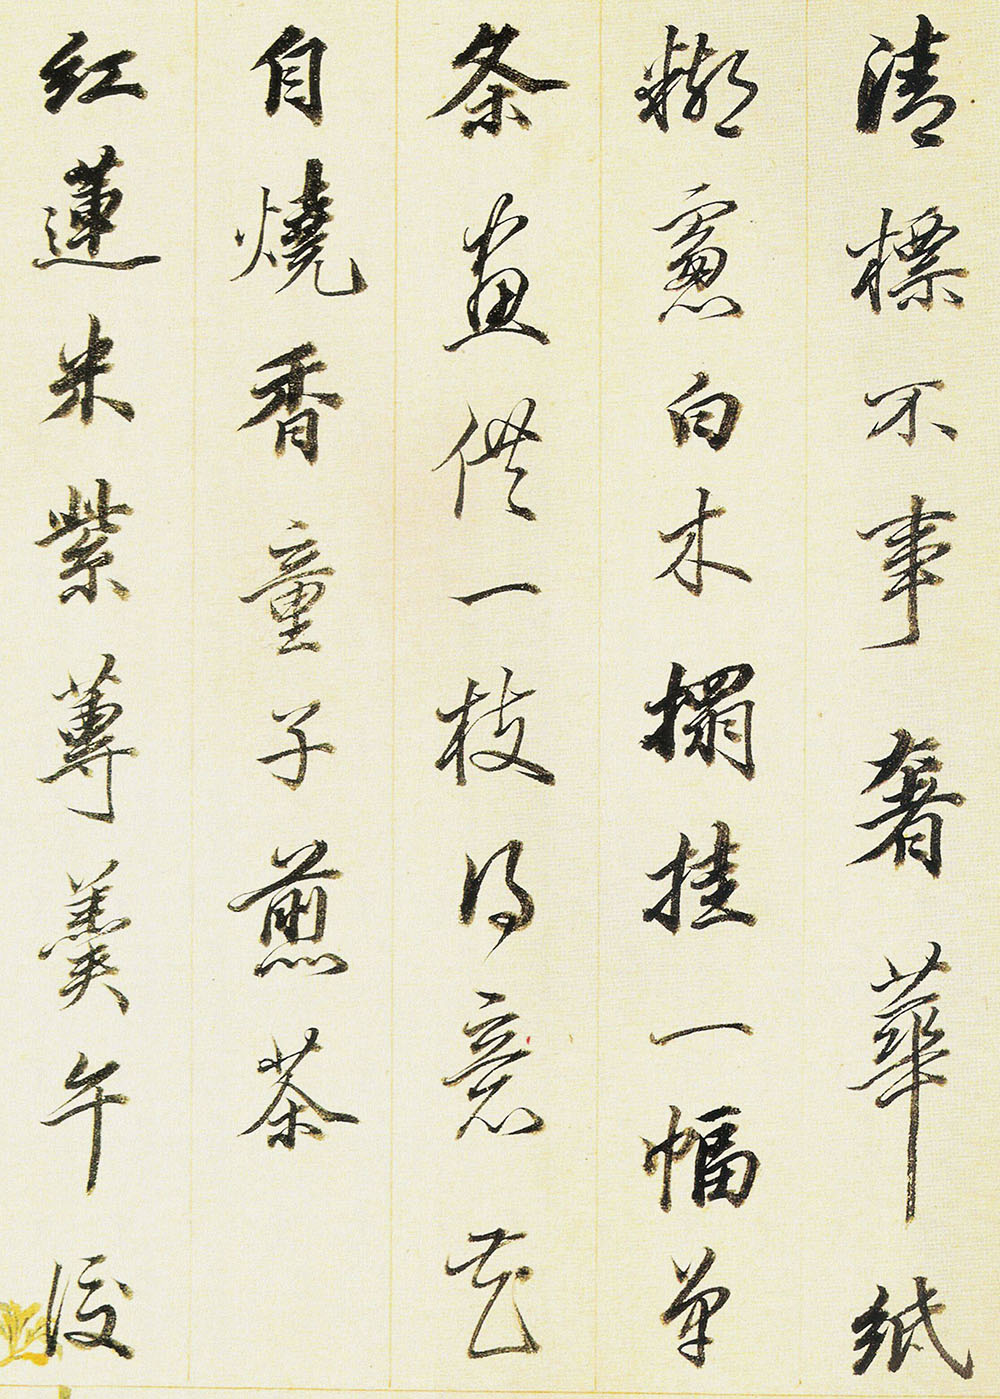 清標不事奢華紙
糊窻白木榻挂一幅單
条畫供一枝得意花
自燒香童子煎茶
紅蓮米紫蓴羹午後